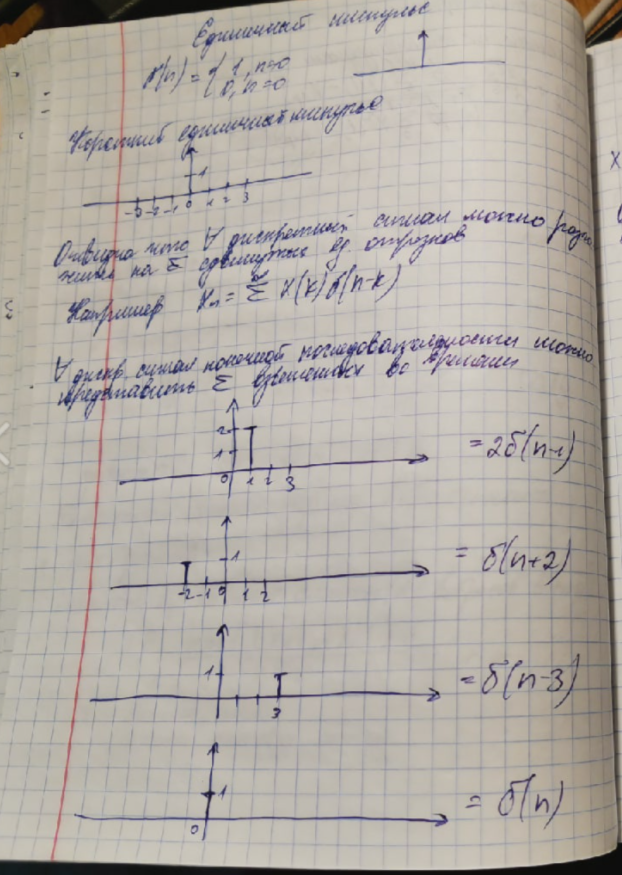 Единичный импульс
δ(n) = { 1, n=0
0, n=0
Короткий единичный импульс
1
-3 -2 -1 0 1 2 3
Очевидно что ∀ дискретный сигнал можно разло
жить на Σ сдвинутых ед отрезков
Например Xn = Σ x(k) δ(n-k)
∀ дискр. сигнал конечной последовательности можно
представить Σ взвешенных во времени
2
1
0 1 2 3
= 2δ(n-1)
1
-2 -1 0 1 2
= δ(n+2)
1
3
= δ(n-3)
1
0
= δ(n)